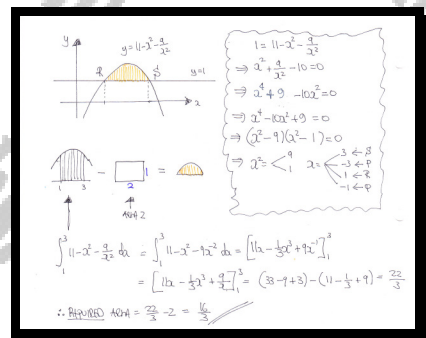 y
y = 11 - x² - 9/x²
R
S
y=1
x
1 3
-
1
=
2
AREA 2
1 = 11 - x² - 9/x²
⇒ x² + 9/x² - 10 = 0
⇒ x⁴ + 9 - 10x² = 0
⇒ x⁴ - 10x² + 9 = 0
⇒ (x² - 9)(x² - 1) = 0
⇒ x² = < 9 1 x = < 3 ← S -3 ← P 1 ← R -1 ← Q
∫₁³ 11 - x² - 9/x² dx = ∫₁³ 11 - x² - 9x⁻² dx = [11x - ⅓x³ + 9x⁻¹]₁³
= [11x - ⅓x³ + 9/x]₁³ = (33 - 9 + 3) - (11 - ⅓ + 9) = 22/3
∴ REQUIRED AREA = 22/3 - 2 = 16/3